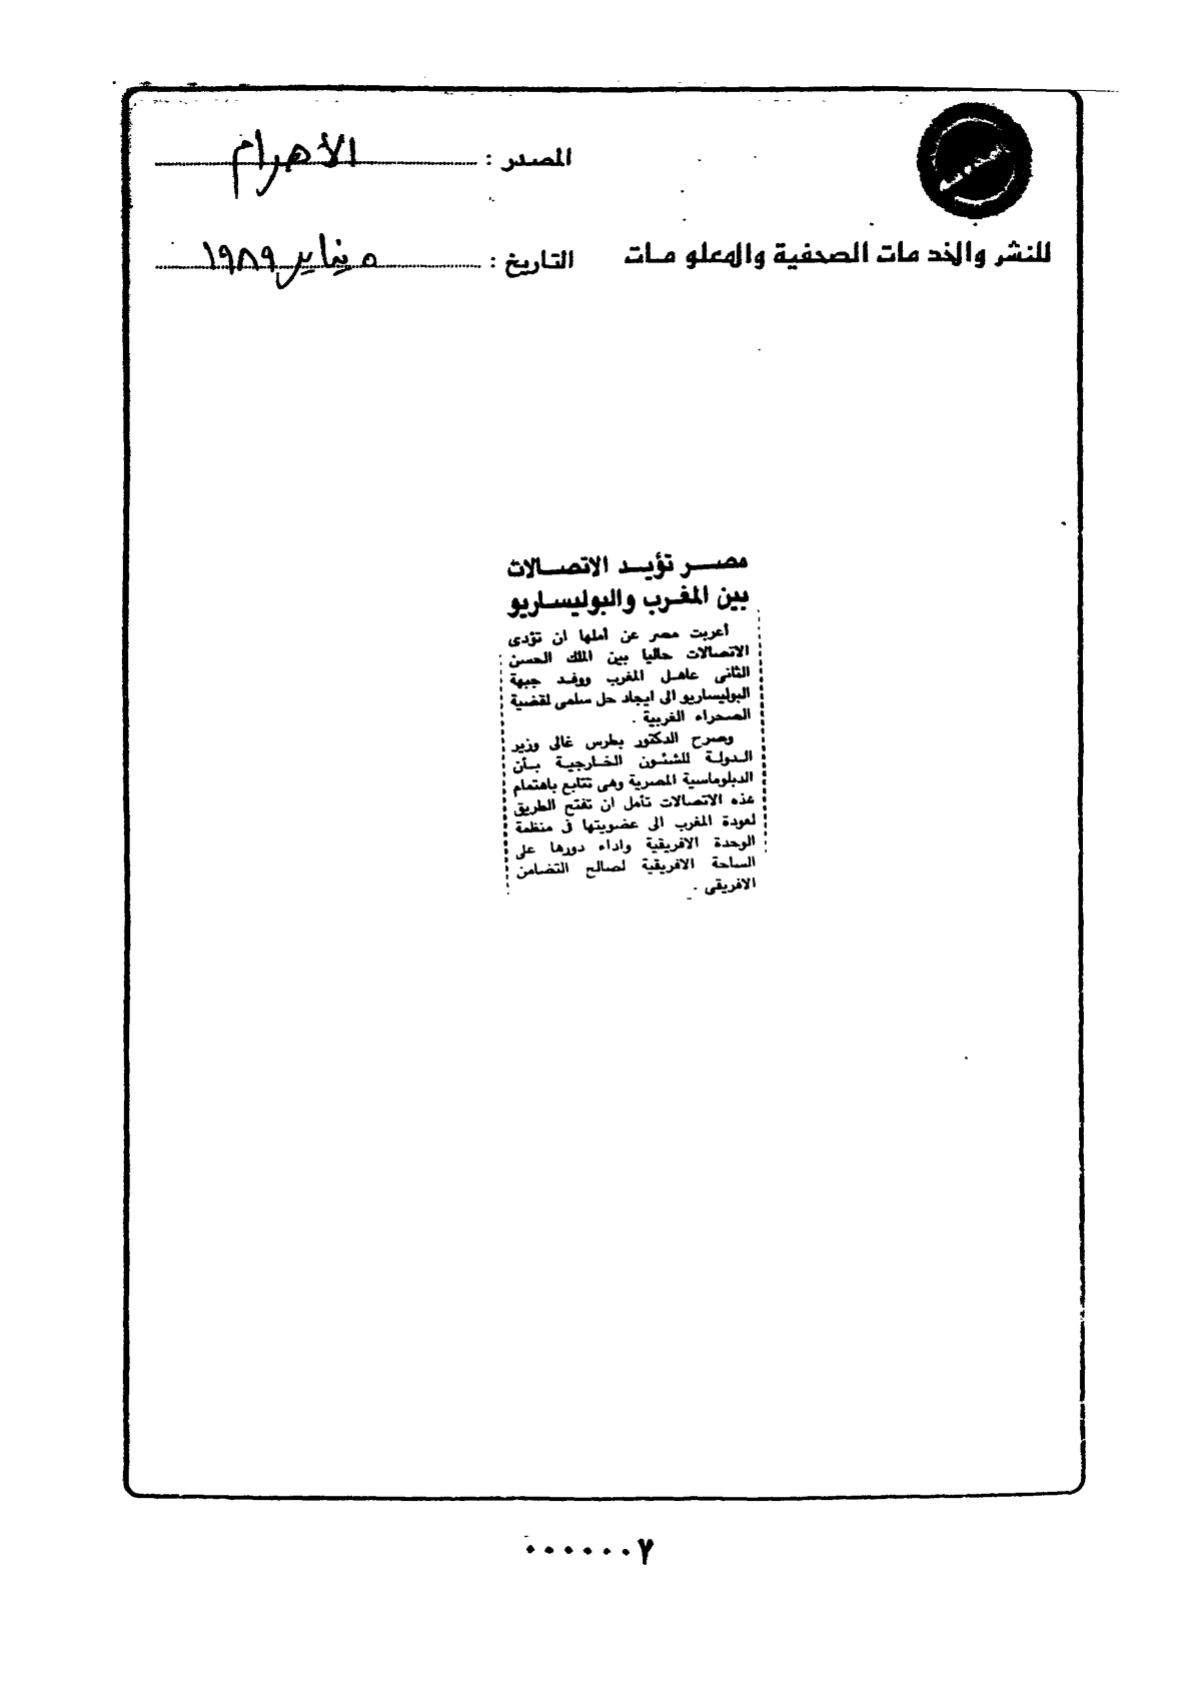 المصدر : الأهرام
للنشر والخدمات الصحفية والمعلومات
التاريخ : ٥ يناير ١٩٨٩
مصر تؤيد الاتصالات
بين المغرب والبوليساريو
أعربت مصر عن أملها ان تؤدى
الاتصالات حاليا بين الملك الحسن
الثانى عاهل المغرب ووفد جبهة
البوليساريو الى ايجاد حل سلمى لقضية
الصحراء الغربية .
وصرح الدكتور بطرس غالى وزير
الدولة للشئون الخارجية بأن
الدبلوماسية المصرية وهى تتابع باهتمام
هذه الاتصالات تأمل ان تفتح الطريق
لعودة المغرب الى عضويتها فى منظمة
الوحدة الافريقية واداء دورها على
الساحة الافريقية لصالح التضامن
الافريقى .
٠٠٠٠٠٠٧